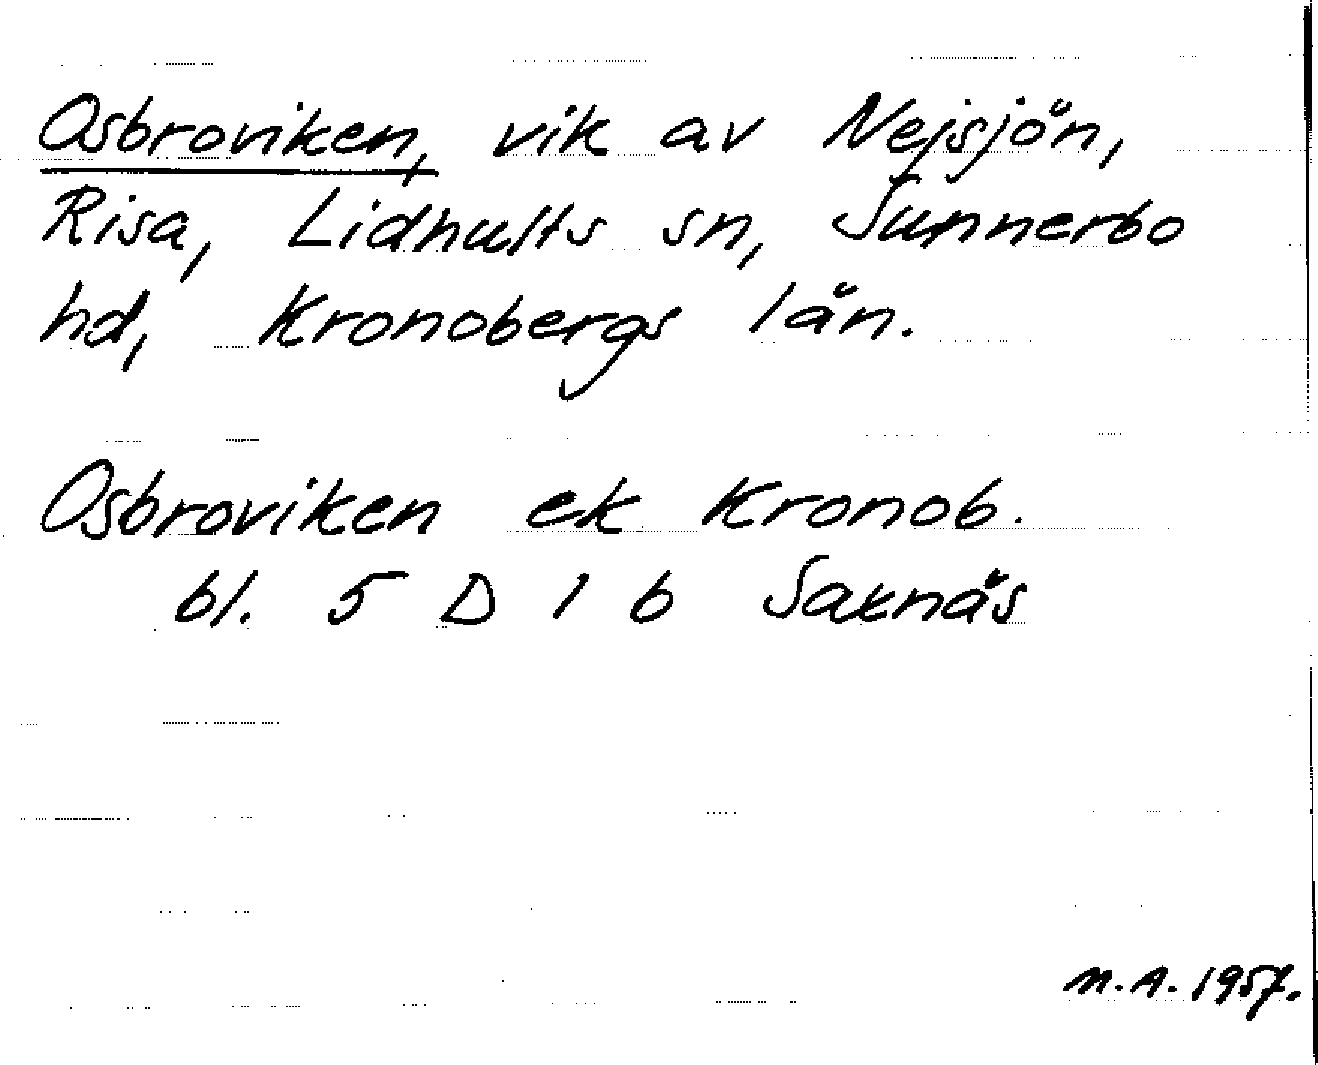 Osbroviken, vik av Nejsjön,
Risa, Lidhults sn, Sunnerbo
hd, Kronobergs län.
Osbroviken ek Kronob.
bl. 5 D 1 b Saxnäs
M.A. 1957.